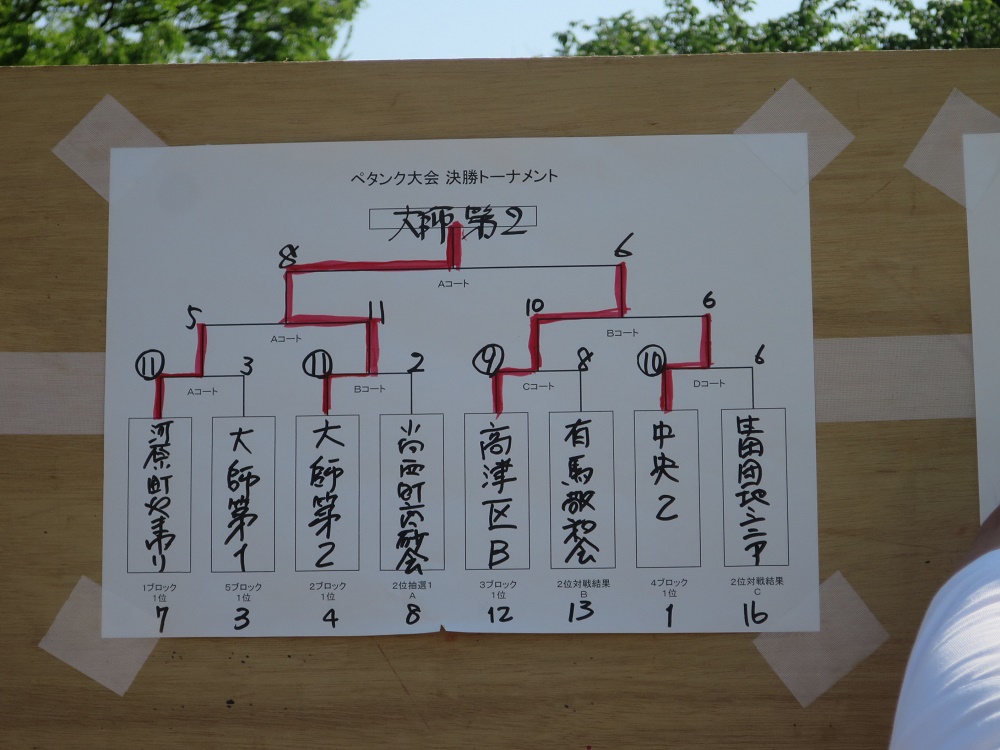 ペタンク大会 決勝トーナメント
大師第2
8 6
Aコート
5 11 10 6
Aコート Bコート
11 3 11 2 9 8 10 6
Aコート Bコート Cコート Dコート
大師第1
大師第2
高津区B
有馬敬和会
中央2
生田団地シニア
1ブロック 5ブロック 2ブロック 2位抽選1 3ブロック 2位対戦結果 4ブロック 2位対戦結果
1位 1位 1位 A 1位 B 1位 C
7 3 4 8 12 13 1 16